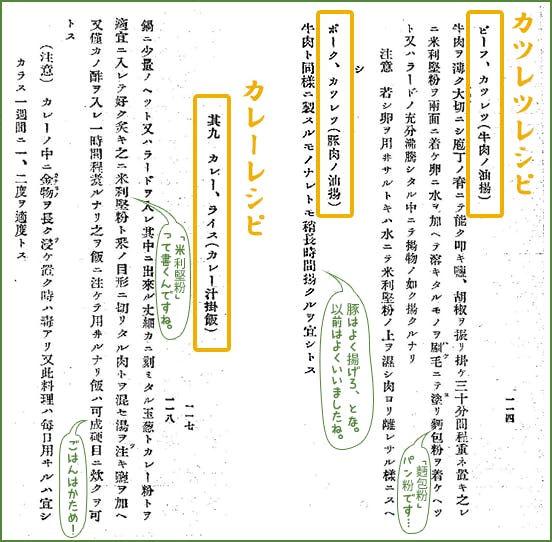 カツレツレシピ
ビーフ、カツレツ(牛肉ノ油揚)
牛肉ヲ薄ク大切ニシ庖丁ノ脊ニテ能ク叩キ鹽、胡椒ヲ振リ掛ケ三十分間程重ネ置キ之レ
ニ米利堅粉ヲ兩面ニ着ケ卵ニ水ヲ加ヘテ溶キタルモノヲ刷毛ニテ塗リ麪包粉ヲ着ケヘツ
ト又ハラードノ充分沸騰シタル中ニテ揚物ノ如ク揚クルナリ
「麵包粉」
パン粉です…
一一四
注意 若シ卵ヲ用ヰサルトキハ水ニテ米利堅粉ノ上ヲ濕シ肉ヨリ離レサル樣ニスヘ
シ
ポーク、カツレツ(豚肉ノ油揚)
牛肉ト同樣ニ製スルモノナレトモ稍長時間揚クルヲ宜シトス
豚はよく揚げろ、とな。
以前はよくいいましたね。
カレーレシピ
其九 カレー、ライス(カレー汁掛飯)
一一七
一一八
鍋ニ少量ノヘット又ハラードヲ入レ其中ニ出來ル丈細カニ刻ミタル玉葱トカレー粉トヲ
適宜ニ入レテ好ク炙キ之ニ米利堅粉ト采ノ目形ニ切リタル肉トヲ混セ湯ヲ注キ鹽ヲ加ヘ
又僅カノ酢ヲ入レ一時間程煮ルナリ之ヲ飯ニ注ケテ用ヰルナリ飯ハ可成硬目ニ炊クヲ可
トス
「米利堅粉」
って書くんですね。
ごはんはかため!
(注意) カレーノ中ニ金物ヲ長ク浸ケ置ク時ハ毒アリ又此料理ハ每日用ヰルハ宜シ
カラス一週間ニ一、二度ヲ適度トス